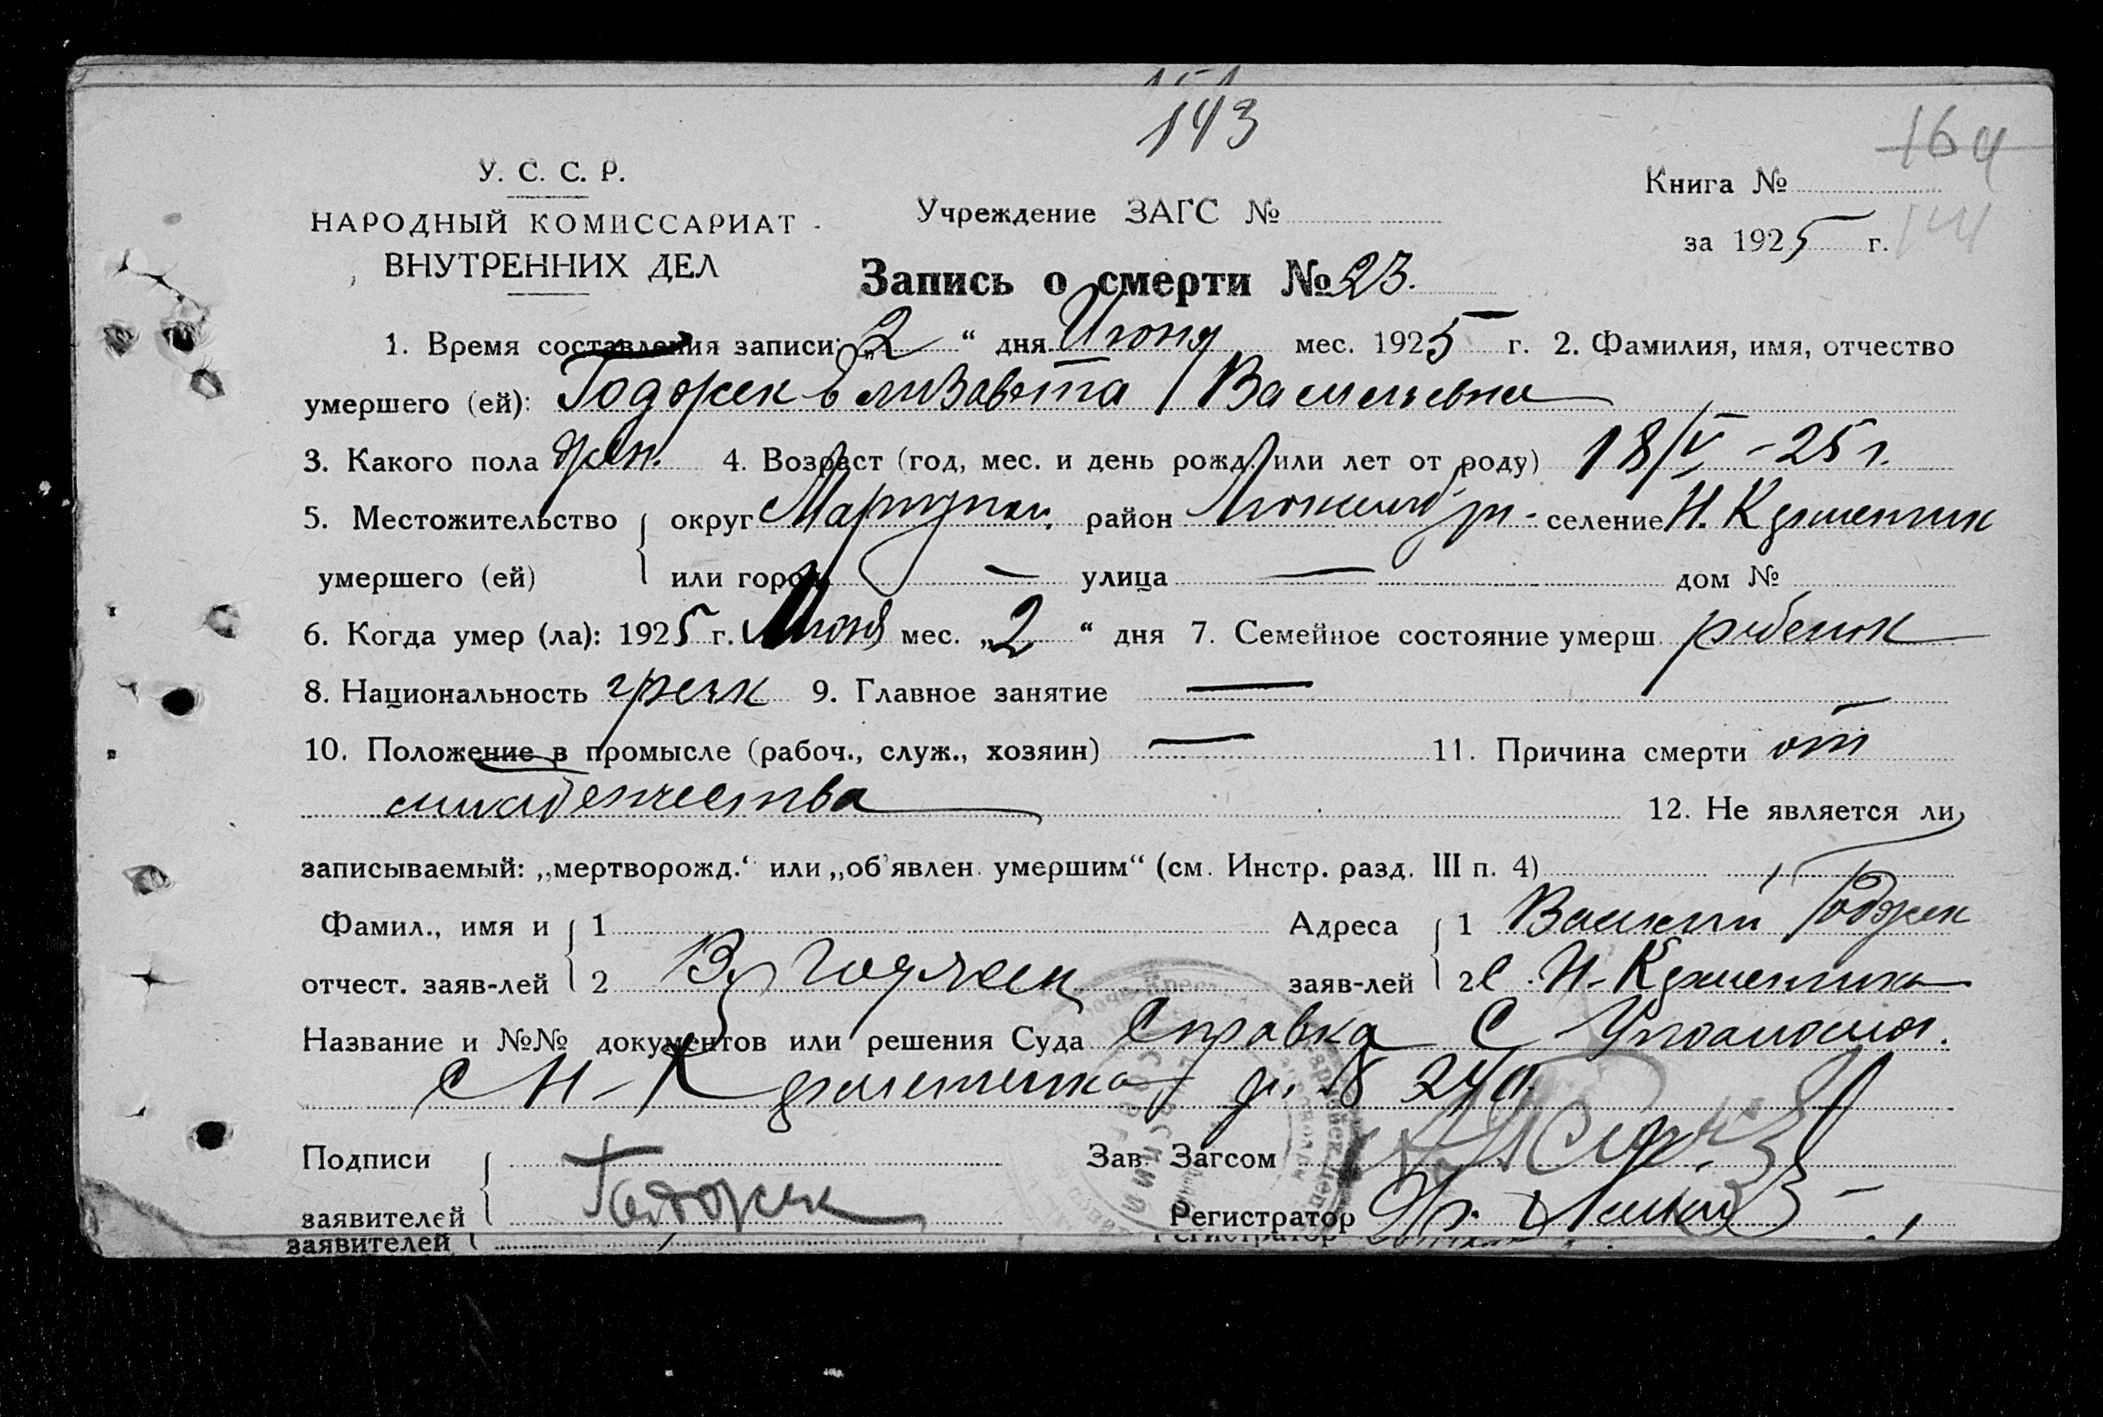 143
164
У. С. С. Р.
НАРОДНЫЙ КОМИССАРИАТ
ВНУТРЕННИХ ДЕЛ
Учреждение ЗАГС №
Книга №
за 1925 г.
Запись о смерти № 23.
1. Время составления записи: „2“ дня Июня мес. 1925 г. 2. Фамилия, имя, отчество
умершего (ей): Годжек Елизавета Васильевна
3. Какого пола жен. 4. Возраст (год, мес. и день рожд. или лет от роду) 18/V – 25 г.
5. Местожительство округ Мариупол. район селение Н. Керменчик
умершего (ей) или город — улица — дом №
6. Когда умер (ла): 1925 г. Июня мес. „2“ дня 7. Семейное состояние умерш. ребенок
8. Национальность грек 9. Главное занятие —
10. Положение в промысле (рабоч., служ., хозяин) — 11. Причина смерти от
младенчества 12. Не является ли
записываемый: „мертворожд.“ или „об'явлен умершим“ (см. Инстр. разд. III п. 4)
Фамил., имя и 1 Адреса 1 Василий Годжек
отчест. заяв-лей 2 В. Годжек заяв-лей 2 С. Н-Керменчик
Название и №№ документов или решения Суда Справка С
С Н-Керменчика № 240
Подписи Зав. Загсом
заявителей Годжек Регистратор
заявителей